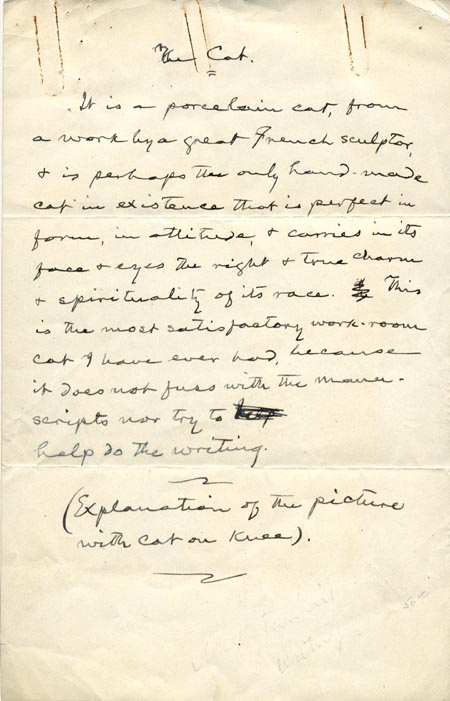 The Cat.
It is a porcelain cat, from
a work by a great French sculptor,
& is perhaps the only hand-made
cat in existence that is perfect in
form, in attitude, & carries in its
face & eyes the right & true charm
& spirituality of its race. This
is the most satisfactory work-room
cat I have ever had, because
it does not fuss with the manu-
scripts nor try to
help do the writing.
(Explanation of the picture
with cat on knee).